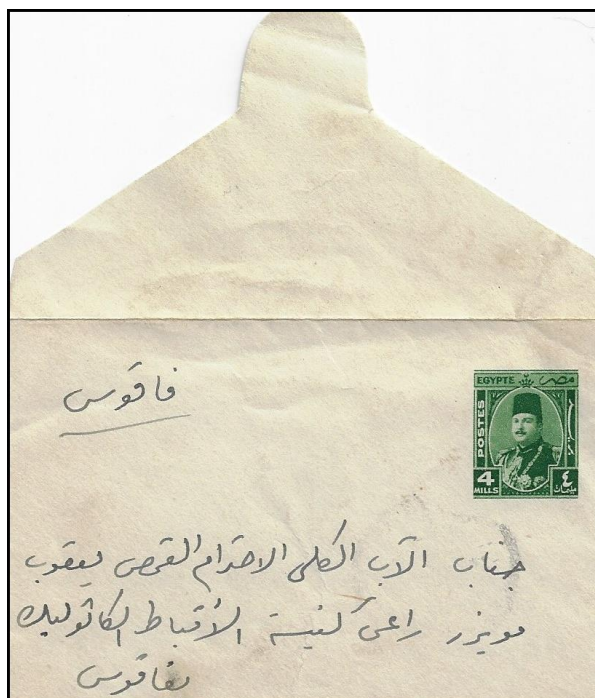 فاقوس
EGYPTE مصر
POSTES
4 ٤
MILLS مليمات
جناب الآب الكلى الاحترام القمص يعقوب
مويزر راعى كنيسة الأقباط الكاثوليك
بفاقوس